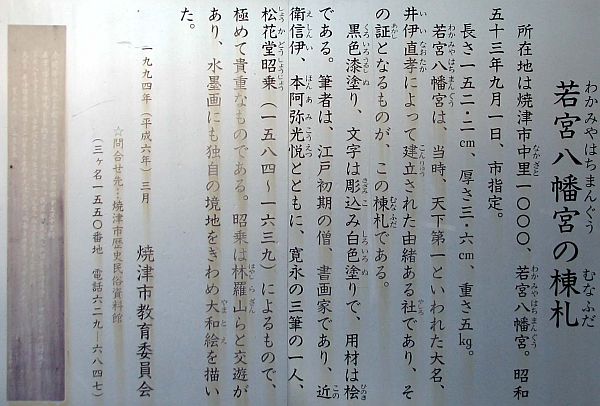 若宮八幡宮の棟札
わかみやはちまんぐう むなふだ
所在地は焼津市中里一〇〇〇、若宮八幡宮。昭和
五十三年九月一日、市指定。
長さ一五二・二cm、厚さ三・六cm、重さ五kg。
若宮八幡宮は、当時、天下第一といわれた大名、
井伊直孝によって建立された由緒ある社であり、そ
の証となるものが、この棟札である。
黒色漆塗り、文字は彫込み白色塗りで、用材は桧
である。筆者は、江戸初期の僧、書画家であり、近
衛信伊、本阿弥光悦とともに、寛永の三筆の一人、
松花堂昭乗（一五八四～一六三九）によるもので、
極めて貴重なものである。昭乗は林羅山らと交遊が
あり、水墨画にも独自の境地をきわめ大和絵を描い
た。
一九九四年（平成六年）三月
焼津市教育委員会
☆問合せ先…焼津市歴史民俗資料館
（三ヶ名一五五〇番地 電話六二九―六八四七）